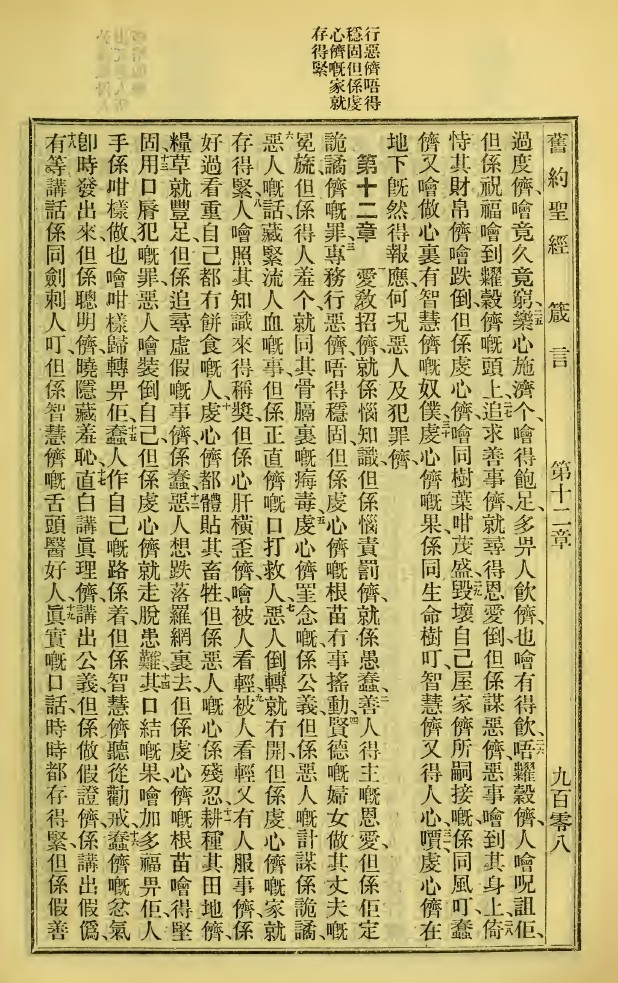 行惡儕唔得
穩固但係虔
心儕嘅家就
存得緊
舊約聖經 箴言 第十二章 九百零八
過度儕噲竟久竟窮、二五樂心施濟个噲得飽足、多畀人飲儕、也噲有得飲、二六唔糶穀儕、人噲呪詛佢、
但係祝福噲到糶穀儕嘅頭上、二七追求善事儕就尋得恩愛、但係謀惡儕、惡事噲到其身上、二八倚
恃其財帛儕噲跌倒、但係虔心儕噲同樹葉咁茂盛、二九毀壞自己屋家儕所嗣接嘅係同風叮、蠢
儕又噲做心裏有智慧儕嘅奴僕、三十虔心儕嘅果係同生命樹叮、智慧儕又得人心、三一嘪虔心儕在
地下旣然得報應、何况惡人及犯罪儕、
第十二章 一愛敎招儕就係惱知識、但係惱責罰儕、就係愚蠢、二善人得主嘅恩愛、但係佢定
詭譎儕嘅罪、三專務行惡儕唔得穩固、但係虔心儕嘅根苗冇事搖動、四賢德嘅婦女做其丈夫嘅
冕旒、但係得人羞个就同其骨膈裏嘅痗毒、五虔心儕罣念嘅係公義、但係惡人嘅計謀係詭譎、
六惡人嘅話藏緊流人血嘅事、但係正直儕嘅口打救人、七惡人倒轉就冇開、但係虔心儕嘅家就
存得緊、八人噲照其知識來得稱獎、但係心肝橫歪儕、噲被人看輕、九被人看輕又有人服事儕、係
好過看重自己都冇餅食嘅人、十虔心儕都體貼其畜牲、但係惡人嘅心係殘忍、十一耕種其田地儕、
糧草就豐足、但係追尋虛假嘅事儕係蠢、十二惡人想跌落羅網裏去、但係虔心儕嘅根苗噲得堅
固、十三用口脣犯嘅罪、惡人噲裝倒自己、但係虔心儕就走脫患難、十四其口結嘅果噲加多福畀佢、人
手係咁樣做、也噲咁樣歸轉畀佢、十五蠢人作自己嘅路係着、但係智慧儕聽從勸戒、十六蠢儕嘅忿氣
卽時發出來、但係聰明儕曉隱藏羞恥、十七直白講眞理儕、講出公義、但係做假證儕、係講出假僞、
十八有等講話係同劍刺人叮、但係智慧儕嘅舌頭醫好人、十九眞實嘅口話、時時都存得緊、但係假善